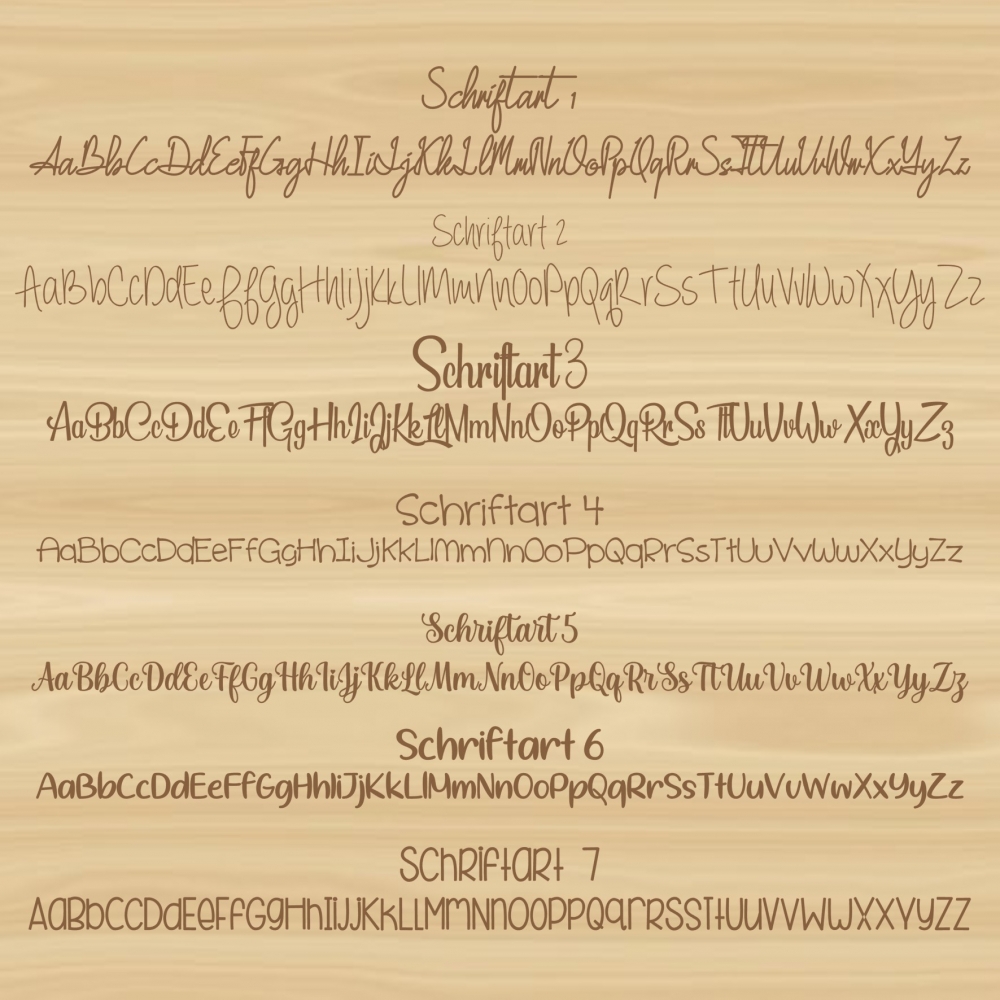 Schriftart 1
AaBbCcDdEeFfGgHhIiJjKkLlMmNnOoPpQqRrSsTtUuVvWwXxYyZz
Schriftart 2
AaBbCcDdEeFfGgHhIiJjKkLlMmNnOoPpQqRrSsTtUuVvWwXxYyZz
Schriftart 3
AaBbCcDdEeFfGgHhIiJjKkLlMmNnOoPpQqRrSsTtUuVvWwXxYyZz
Schriftart 4
AaBbCcDdEeFfGgHhIiJjKkLlMmNnOoPpQqRrSsTtUuVvWwXxYyZz
Schriftart 5
AaBbCcDdEeFfGgHhIiJjKkLlMmNnOoPpQqRrSsTtUuVvWwXxYyZz
Schriftart 6
AaBbCcDdEeFfGgHhIiJjKkLlMmNnOoPpQqRrSsTtUuVvWwXxYyZz
Schriftart 7
AaBbCcDdEeFfGgHhIiJjKkLlMmNnOoPpQqRrSsTtUuVvWwXxYyZz